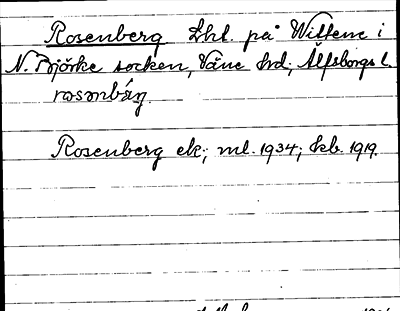 Rosenberg Lht. på Wittene i
N. Björke socken, Väne hd; Älfsborgs l.
Rosenberg ek; ml. 1934; kb. 1919.